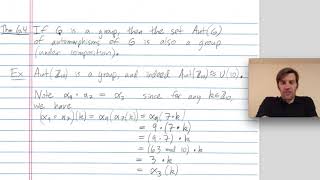 Thm 6.4 If G is a group, then the set Aut(G)
of automorphisms of G is also a group
(under composition).
Ex Aut(Z₁₀) is a group, and indeed Aut(Z₁₀) ≈ U(10).
Note α₉ ∘ α₇ = α₃ since for any k∈Z₁₀,
we have
(α₉ ∘ α₇)(k) = α₉(α₇(k)) = α₉(7·k)
= 9·(7·k)
= (9·7)·k
= (63 mod 10)·k
= 3·k
= α₃(k)